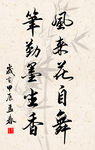 風來花自舞
筆勤墨生香
歲在甲辰孟春